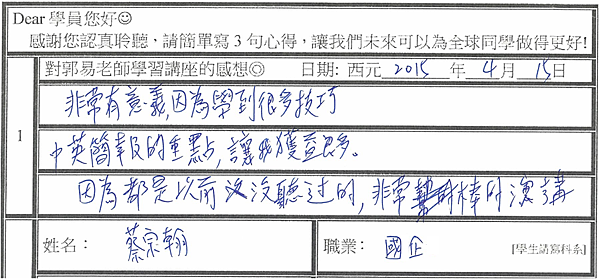 Dear 學員您好☺
感謝您認真聆聽、請簡單寫 3 句心得，讓我們未來可以為全球同學做得更好!
對郭易老師學習講座的感想◎ 日期: 西元 2015 年 4 月 15 日
1
非常有意義,因為學到很多技巧
中英簡報的重點,讓我獲益良多。
因為都是以前沒聽过的,非常棒的演講
姓名： 蔡宗翰 職業： 國企 [學生請寫科系]